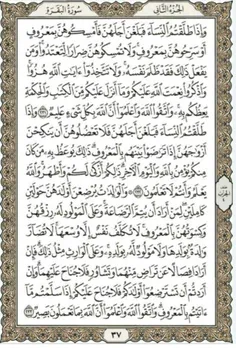 الجزء الثاني
سورة البقرة
وَإِذَا طَلَّقْتُمُ النِّسَاءَ فَبَلَغْنَ أَجَلَهُنَّ فَأَمْسِكُوهُنَّ بِمَعْرُوفٍ
أَوْ سَرِّحُوهُنَّ بِمَعْرُوفٍ وَلَا تُمْسِكُوهُنَّ ضِرَارًا لِّتَعْتَدُوا وَمَن
يَفْعَلْ ذَٰلِكَ فَقَدْ ظَلَمَ نَفْسَهُ وَلَا تَتَّخِذُوا آيَاتِ اللَّهِ هُزُوًا
وَاذْكُرُوا نِعْمَتَ اللَّهِ عَلَيْكُمْ وَمَا أَنزَلَ عَلَيْكُم مِّنَ الْكِتَابِ وَالْحِكْمَةِ
يَعِظُكُم بِهِ وَاتَّقُوا اللَّهَ وَاعْلَمُوا أَنَّ اللَّهَ بِكُلِّ شَيْءٍ عَلِيمٌ ٢٣١ وَإِذَا
طَلَّقْتُمُ النِّسَاءَ فَبَلَغْنَ أَجَلَهُنَّ فَلَا تَعْضُلُوهُنَّ أَن يَنكِحْنَ
أَزْوَاجَهُنَّ إِذَا تَرَاضَوْا بَيْنَهُم بِالْمَعْرُوفِ ذَٰلِكَ يُوعَظُ بِهِ مَن كَانَ
مِنكُمْ يُؤْمِنُ بِاللَّهِ وَالْيَوْمِ الْآخِرِ ذَٰلِكُمْ أَزْكَىٰ لَكُمْ وَأَطْهَرُ وَاللَّهُ
يَعْلَمُ وَأَنتُمْ لَا تَعْلَمُونَ ٢٣٢ وَالْوَالِدَاتُ يُرْضِعْنَ أَوْلَادَهُنَّ حَوْلَيْنِ
كَامِلَيْنِ لِمَنْ أَرَادَ أَن يُتِمَّ الرَّضَاعَةَ وَعَلَى الْمَوْلُودِ لَهُ رِزْقُهُنَّ
وَكِسْوَتُهُنَّ بِالْمَعْرُوفِ لَا تُكَلَّفُ نَفْسٌ إِلَّا وُسْعَهَا لَا تُضَارَّ
وَالِدَةٌ بِوَلَدِهَا وَلَا مَوْلُودٌ لَّهُ بِوَلَدِهِ وَعَلَى الْوَارِثِ مِثْلُ ذَٰلِكَ فَإِنْ
أَرَادَا فِصَالًا عَن تَرَاضٍ مِّنْهُمَا وَتَشَاوُرٍ فَلَا جُنَاحَ عَلَيْهِمَا وَإِنْ
أَرَدتُّمْ أَن تَسْتَرْضِعُوا أَوْلَادَكُمْ فَلَا جُنَاحَ عَلَيْكُمْ إِذَا سَلَّمْتُم مَّا
آتَيْتُم بِالْمَعْرُوفِ وَاتَّقُوا اللَّهَ وَاعْلَمُوا أَنَّ اللَّهَ بِمَا تَعْمَلُونَ بَصِيرٌ ٢٣٣
٣٧